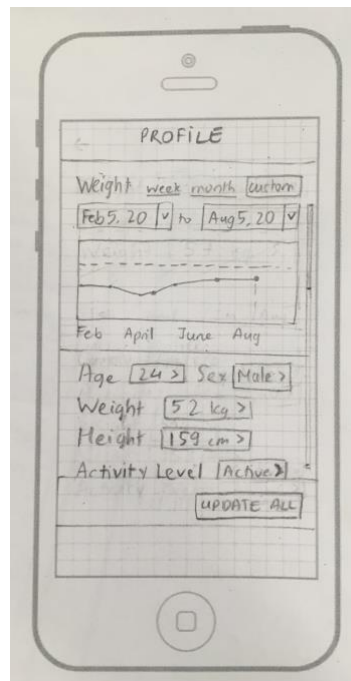 PROFILE
Weight week month custom
Feb 5, 20 to Aug 5, 20
Feb April June Aug
Age 24 > Sex Male >
Weight 52 kg >
Height 159 cm >
Activity Level Active >
UPDATE ALL